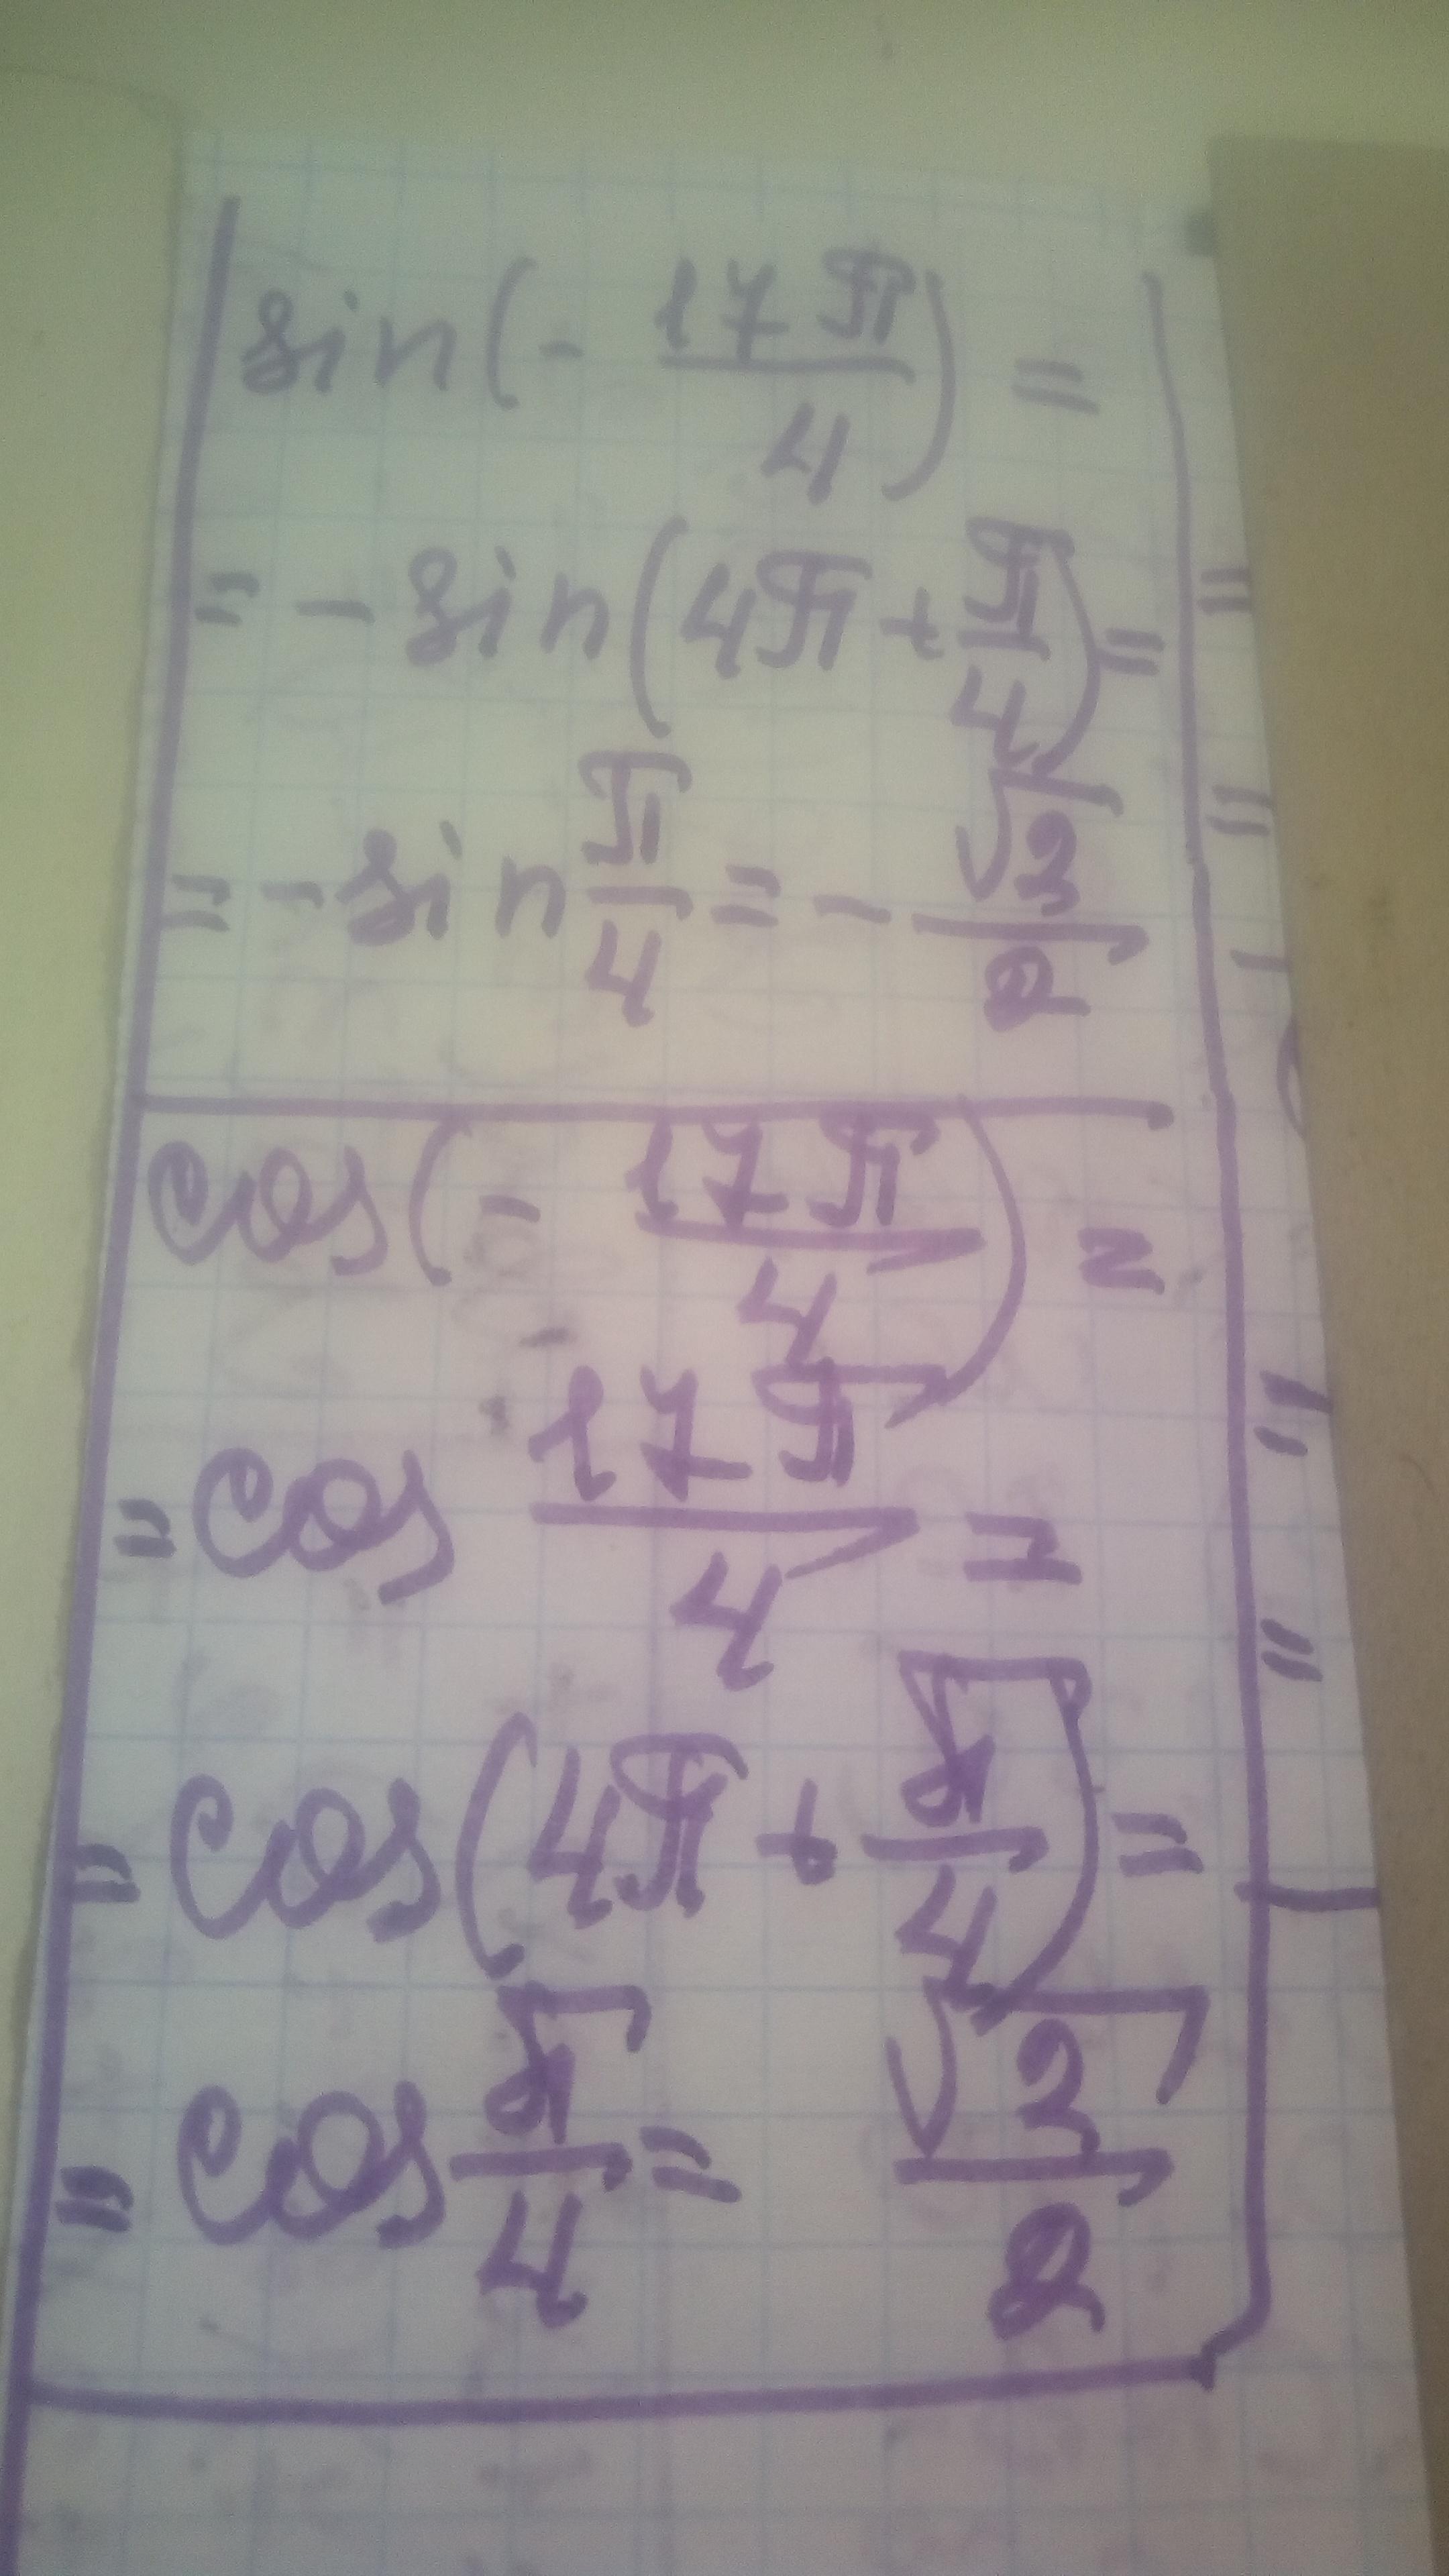 sin(- 17π/4) =
= - sin(4π + π/4) =
= - sin π/4 = - √3/2
cos(- 17π/4) =
= cos 17π/4 =
= cos(4π + π/4) =
= cos π/4 = √3/2